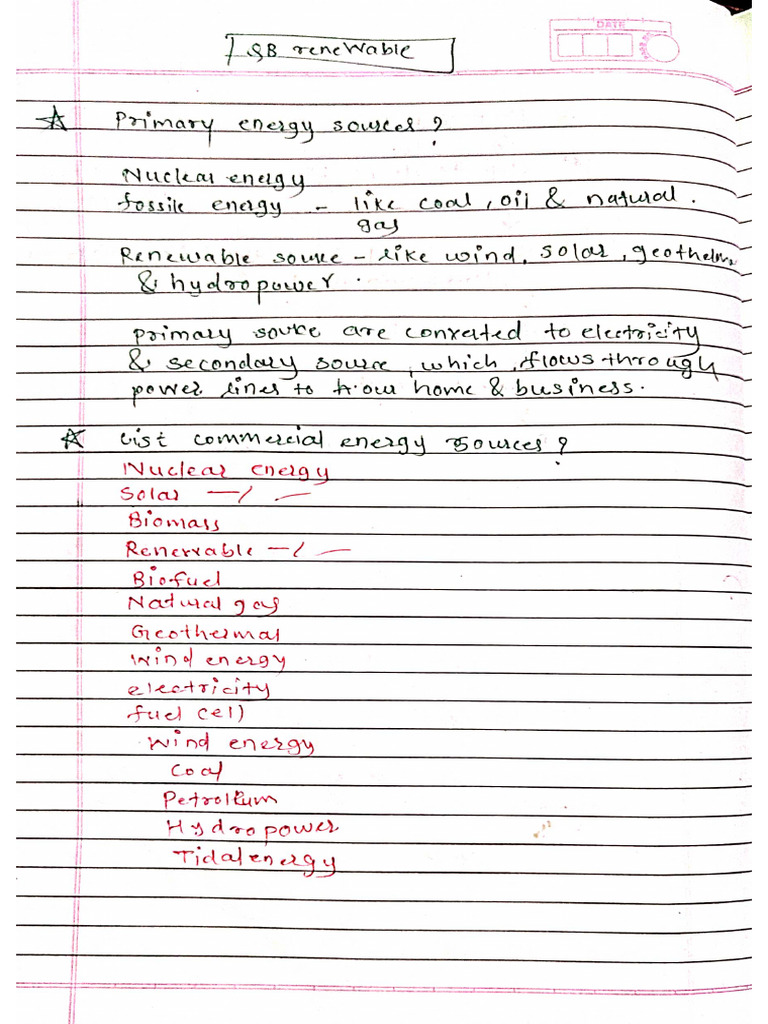 DATE
QB renewable
Primary energy sources ?
Nuclear energy
fossile energy - like coal, oil & natural.
gas
Renewable source - like wind, solar, geotherm
& hydropower.
primary source are converted to electricity
& secondary source, which, flows through
power lines to our home & business.
List commercial energy sources ?
Nuclear energy
Solar —〃—
Biomass
Renewable —〃—
Biofuel
Natural gas
Geothermal
Wind energy
electricity
fuel cell
Wind energy
Coal
Petrolium
Hydropower
Tidal energy